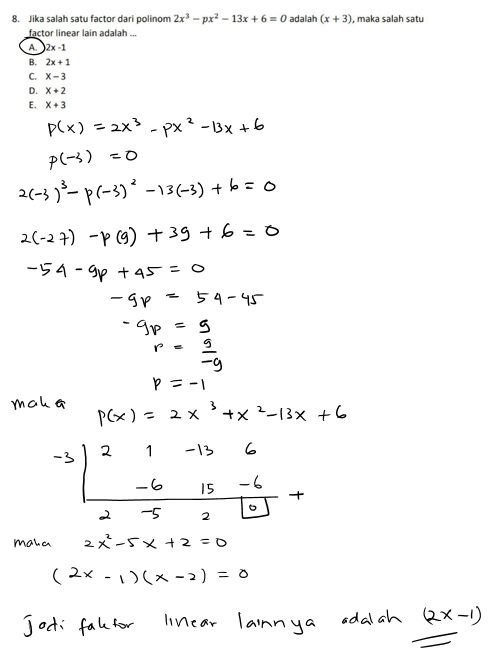 8. Jika salah satu factor dari polinom 2x³ − px² − 13x + 6 = 0 adalah (x + 3), maka salah satu
factor linear lain adalah ...
A. 2x -1
B. 2x + 1
C. X – 3
D. X + 2
E. X + 3
p(x) = 2x³ - px² - 13x + 6
p(-3) = 0
2(-3)³ - p(-3)² - 13(-3) + 6 = 0
2(-27) - p(9) + 39 + 6 = 0
-54 - 9p + 45 = 0
-9p = 54 - 45
-9p = 9
p = 9/-9
p = -1
maka
p(x) = 2x³ + x² - 13x + 6
-3 | 2 1 -13 6
-6 15 -6 +
2 -5 2 0
maka 2x² - 5x + 2 = 0
(2x - 1)(x - 2) = 0
jadi faktor linear lainnya adalah (2x - 1)